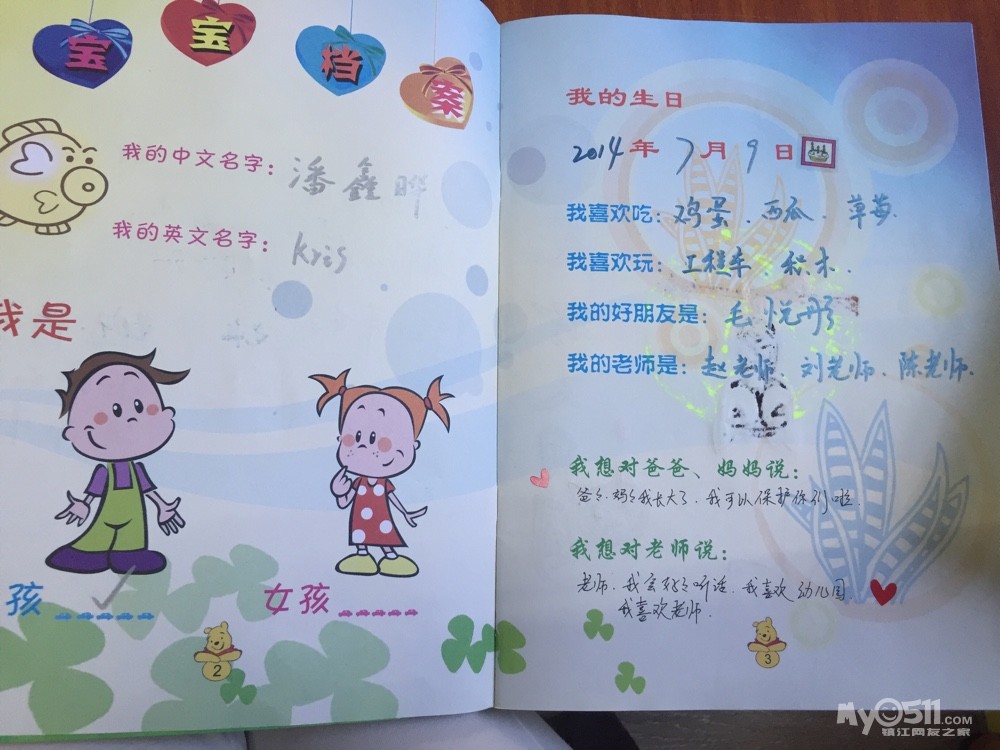 宝宝档案
我的中文名字：潘鑫晔
我的英文名字：Kris
我是
孩
女孩
2
我的生日
2014年7月9日
我喜欢吃：鸡蛋、西瓜、草莓.
我喜欢玩：工程车、积木.
我的好朋友是：毛悦彤
我的老师是：赵老师、刘老师、陈老师.
我想对爸爸、妈妈说：
爸爸、妈妈我长大了、我可以保护你们啦.
我想对老师说：
老师、我会好好听话、我喜欢幼儿园
我喜欢老师.
3
My0511.com
镇江网友之家